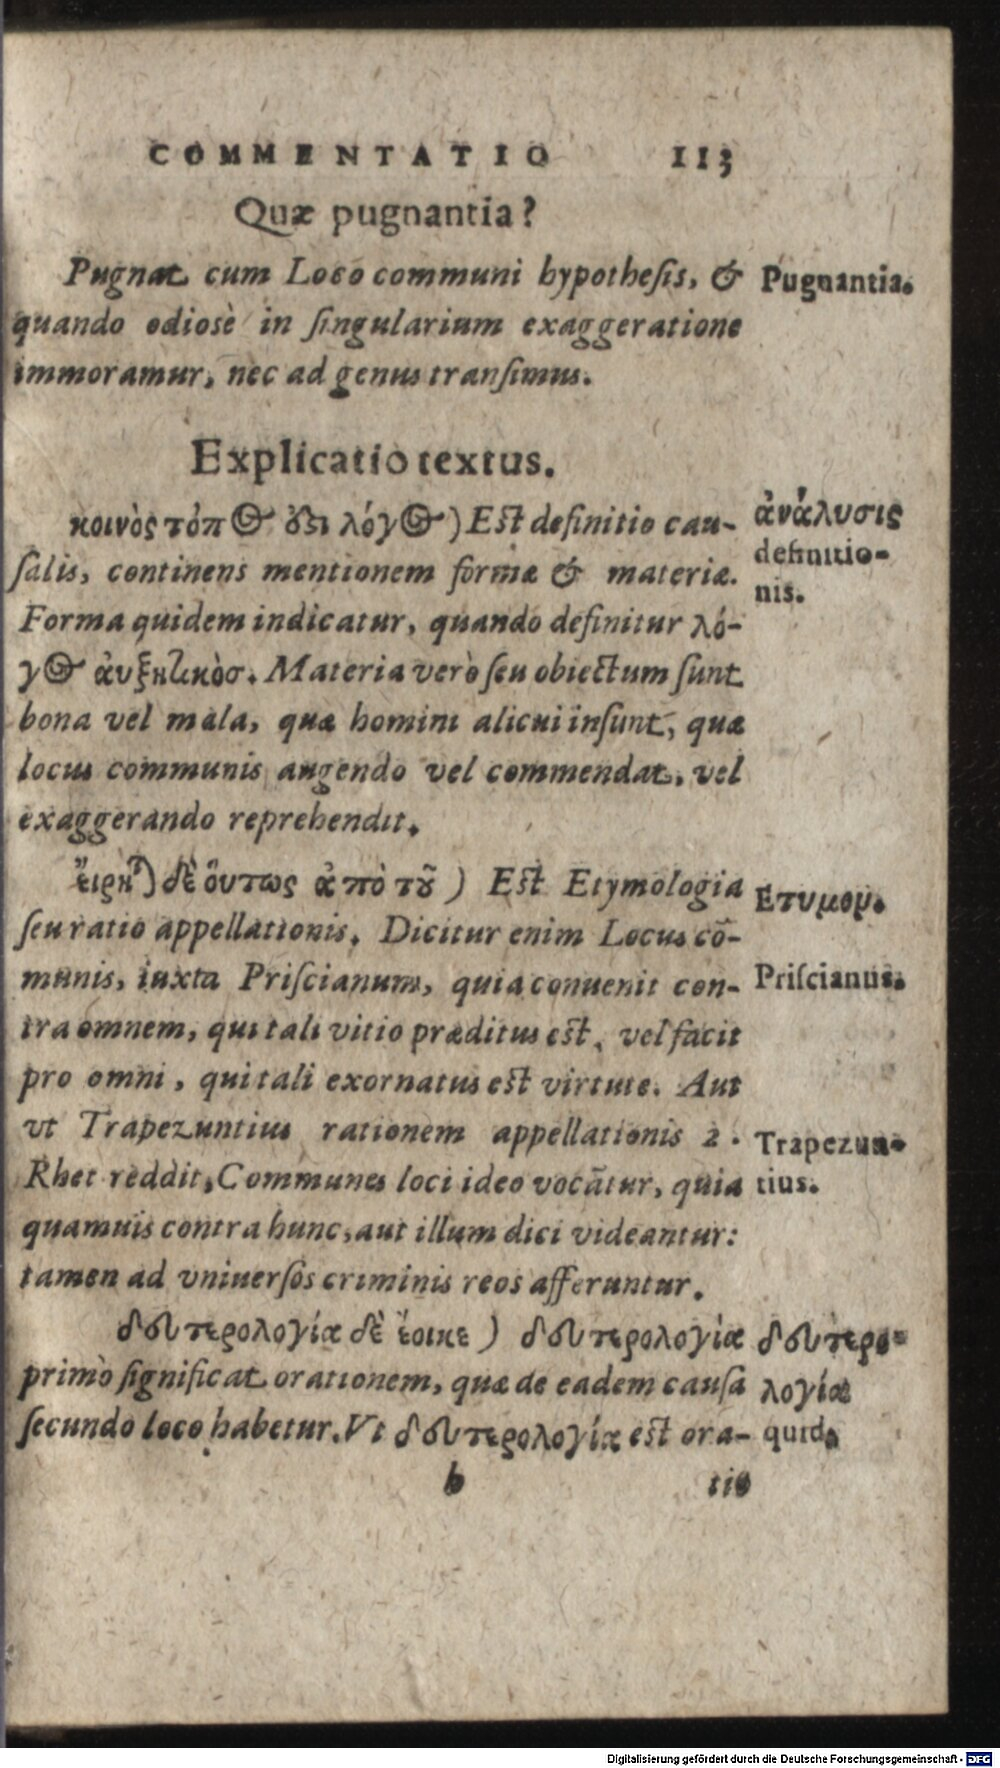 COMMENTATIO 113
Quæ pugnantia?
Pugnat cum Loco communi hypothesis, &
Pugnantia.
quando odiosè in singularium exaggeratione
immoramur, nec ad genus transimus.
Explicatio textus.
κοινὸς τόπος ὅξι λόγος) Est definitio cau-
ἀνάλυσις
definitio-
nis.
salis, continens mentionem formæ & materiæ.
Forma quidem indicatur, quando definitur λό-
γος ἀυξητικὸσ. Materia verò seu obiectum sunt
bona vel mala, quæ homini alicui insunt, quæ
locus communis augendo vel commendat, vel
exaggerando reprehendit.
ἔιρητ) δὲ ὅυτως ἀπὸ τȣ͂ ) Est Etymologia
Ετυμομ.
seu ratio appellationis. Dicitur enim Locus cõ-
munis, iuxta Priscianum, quia conuenit con-
Priscianus.
tra omnem, qui tali vitio præditus est, vel facit
pro omni, qui tali exornatus est virtute. Aut
vt Trapezuntius rationem appellationis 2.
Trapezun-
tius.
Rhet reddit, Communes loci ideo vocãtur, quia
quamuis contra hunc, aut illum dici videantur:
tamen ad vniuersos criminis reos afferuntur.
δευτερολογία δὲ ἔοικε ) δευτερολογία
δευτερο-
λογία
quid.
primò significat orationem, quæ de eadem causa
secundo loco habetur. Vt δευτερολογία est ora-
b tio
Digitalisierung gefördert durch die Deutsche Forschungsgemeinschaft - DFG